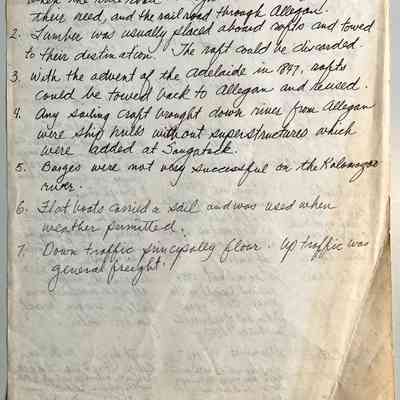 their need, and the railroad through Allegan.
2. Lumber was usually placed aboard rafts and towed
to their destination. The raft could be discarded.
3. With the advent of the Adelaide in 1847, rafts
could be towed back to Allegan and reused.
4. Any sailing craft brought down river from Allegan
were ship hulls without superstructures which
were added at Saugatuck.
5. Barges were not very successful on the Kalamazoo
river.
6. Flat boats carried a sail and was used when
weather permitted.
7. Down traffic principally flour. Up traffic was
general freight.